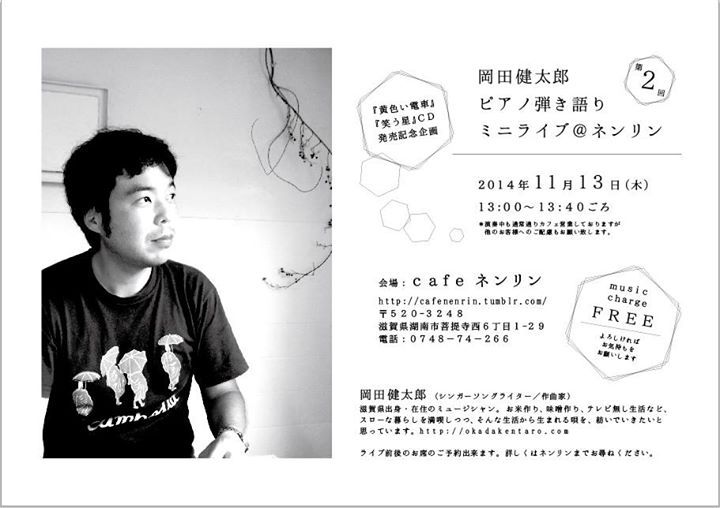 『黄色い電車』
『笑う星』CD
発売記念企画
岡田健太郎
ピアノ弾き語り
ミニライブ@ネンリン
第2回
2014年11月13日(木)
13:00〜13:40ごろ
*演奏中も通常通りカフェ営業しておりますが
他のお客様へのご配慮もお願い致します。
会場:cafe ネンリン
http://cafenenrin.tumblr.com/
〒520-3248
滋賀県湖南市菩提寺西6丁目1-29
電話:0748-74-266
music
charge
FREE
よろしければ
お気持ちを
お願いします
岡田健太郎 (シンガーソングライター/作曲家)
滋賀県出身・在住のミュージシャン。お米作り、味噌作り、テレビ無し生活など、
スローな暮らしを満喫しつつ、そんな生活から生まれる唄を、紡いでいきたいと
思っています。http://okadakentaro.com
ライブ前後のお席のご予約出来ます。詳しくはネンリンまでお尋ねください。